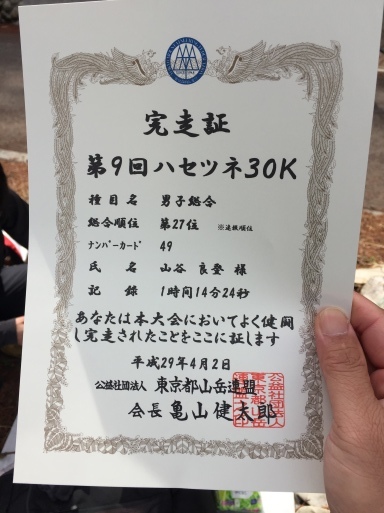 完走証
第9回ハセツネ30K
種目名 男子総合
総合順位 第27位 ※速報順位
ナンバーカード 49
氏名 山谷 良登 様
記録 1時間14分24秒
あなたは本大会においてよく健闘
し完走されたことをここに証します
平成29年4月2日
公益社団法人 東京都山岳連盟
会長 亀山健太郎